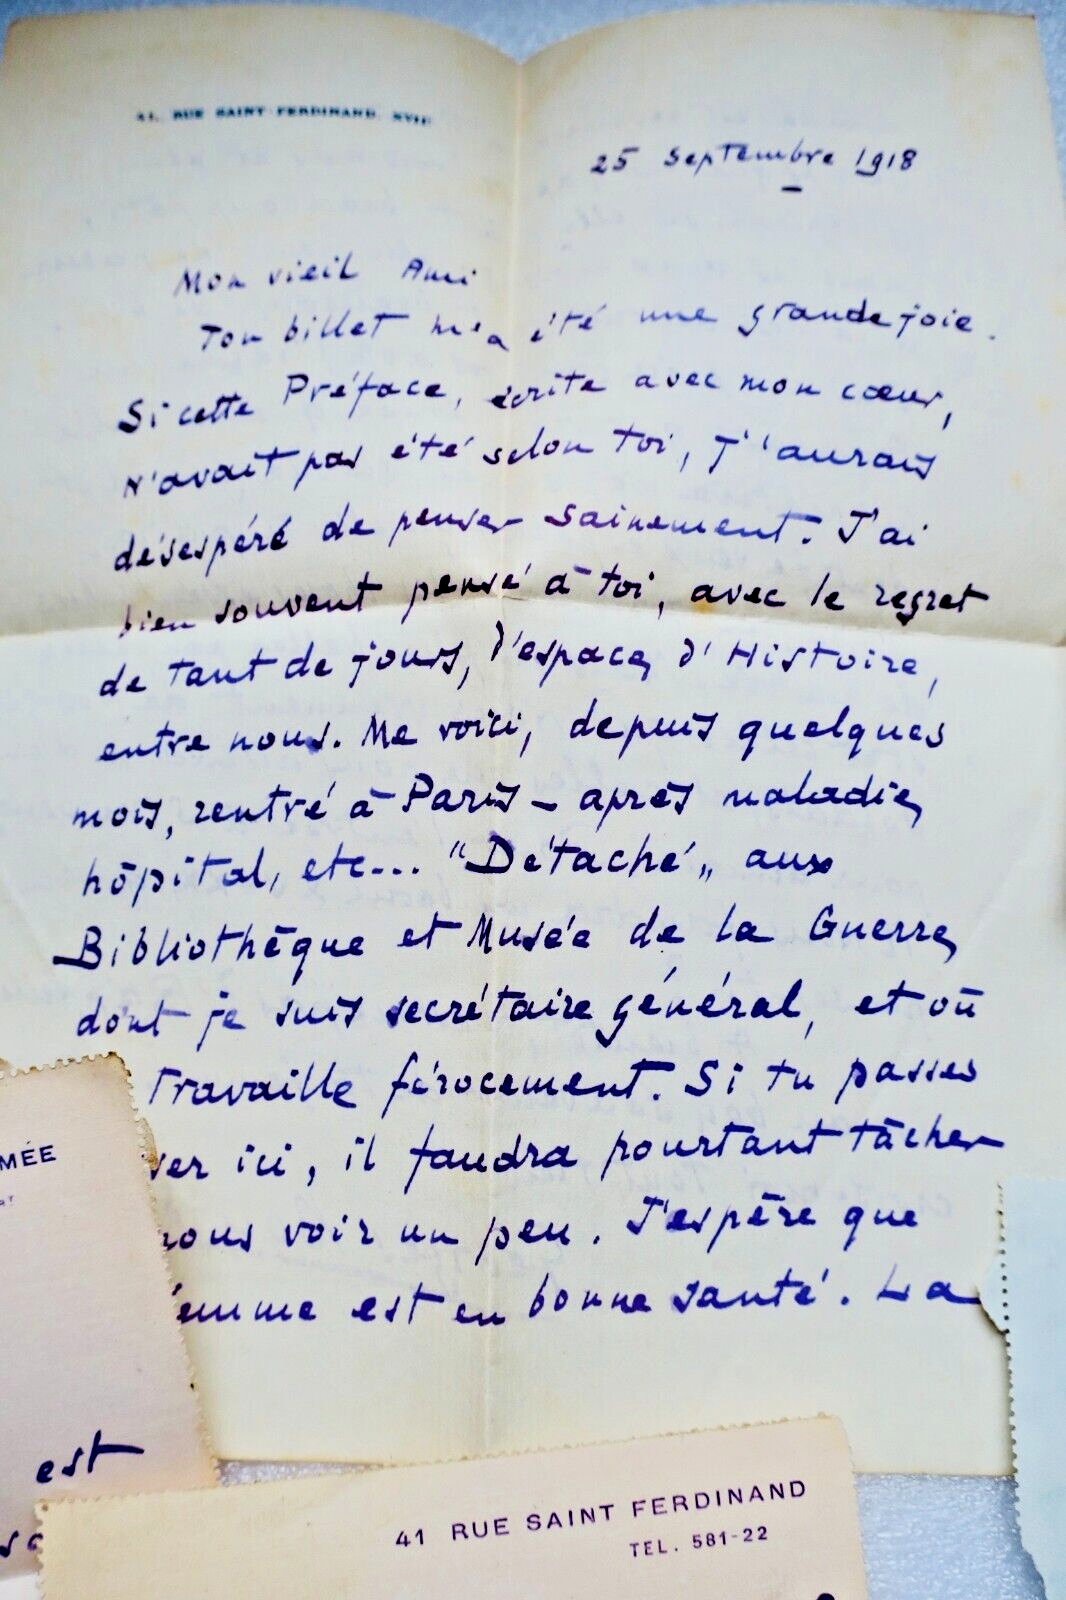 41, RUE SAINT-FERDINAND. XVIIe
25 Septembre 1918
Mon vieil Ami
Ton billet m'a été une grande joie.
Si cette Préface, écrite avec mon cœur,
n'avait pas été selon toi, j'aurais
désespéré de penser sainement. J'ai
bien souvent pensé à toi, avec le regret
de tant de jours, d'espace, d'Histoire,
entre nous. Me voici, depuis quelques
mois, rentré à Paris – après maladie,
hôpital, etc... "Détaché" aux
Bibliothèque et Musée de la Guerre,
dont je suis secrétaire général, et où
travaille férocement. Si tu passes
ver ici, il faudra pourtant tâcher
nous voir un peu. J'espère que
emme est en bonne santé. La
MÉE
est
41 RUE SAINT FERDINAND
TEL. 581-22